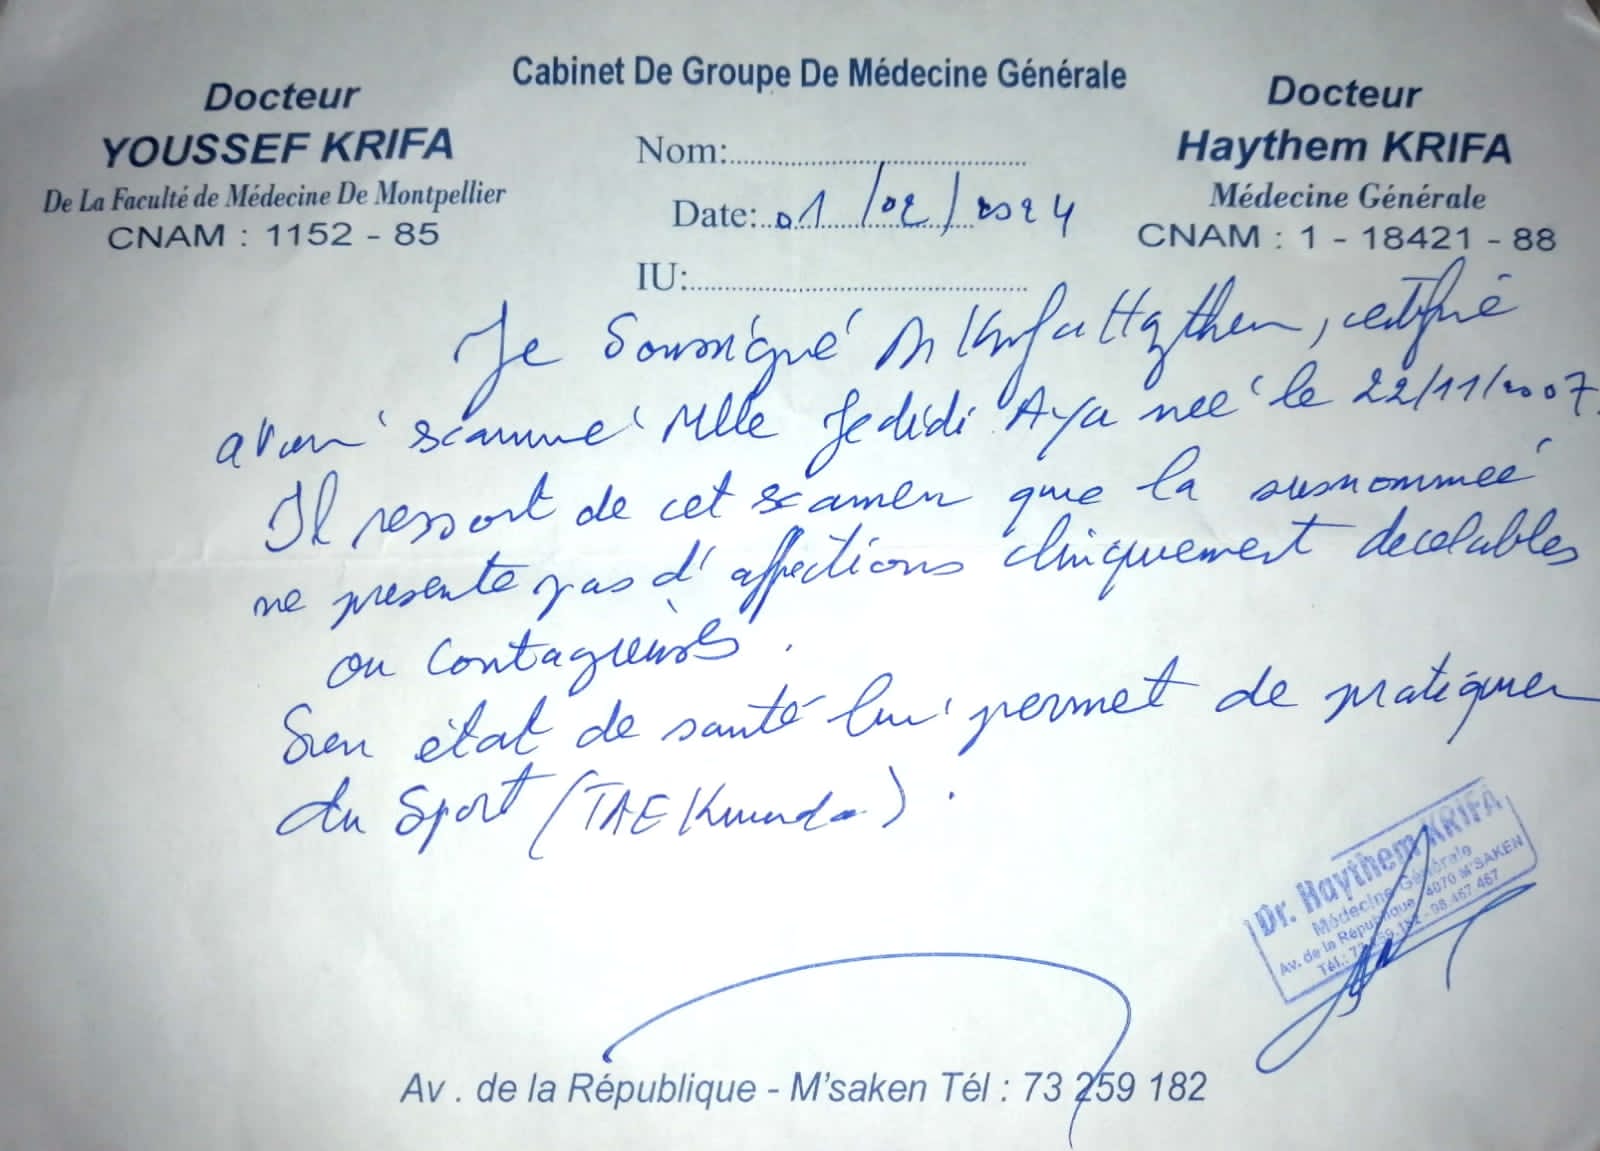 Cabinet De Groupe De Médecine Générale
Docteur
YOUSSEF KRIFA
De La Faculté de Médecine De Montpellier
CNAM : 1152 - 85
Nom:
Date: 01/02/2024
IU:
Docteur
Haythem KRIFA
Médecine Générale
CNAM : 1 - 18421 - 88
Je Soussigné Dr Krifa Haythem, certifie
avoir examiné Mlle Jedidi Aya neé le 22/11/2007.
Il ressort de cet examen que la susnommeé
ne presente pas d'affections cliniquement decelables
ou contagieuses.
Son état de santé lui permet de pratiquer
du Sport (TAEKwondo).
Dr. Haythem KRIFA
Médecine Générale
Av. de la République 4070 M'SAKEN
Tél.: 73.259.182 - 98.467.467
Av . de la République - M'saken Tél : 73 259 182